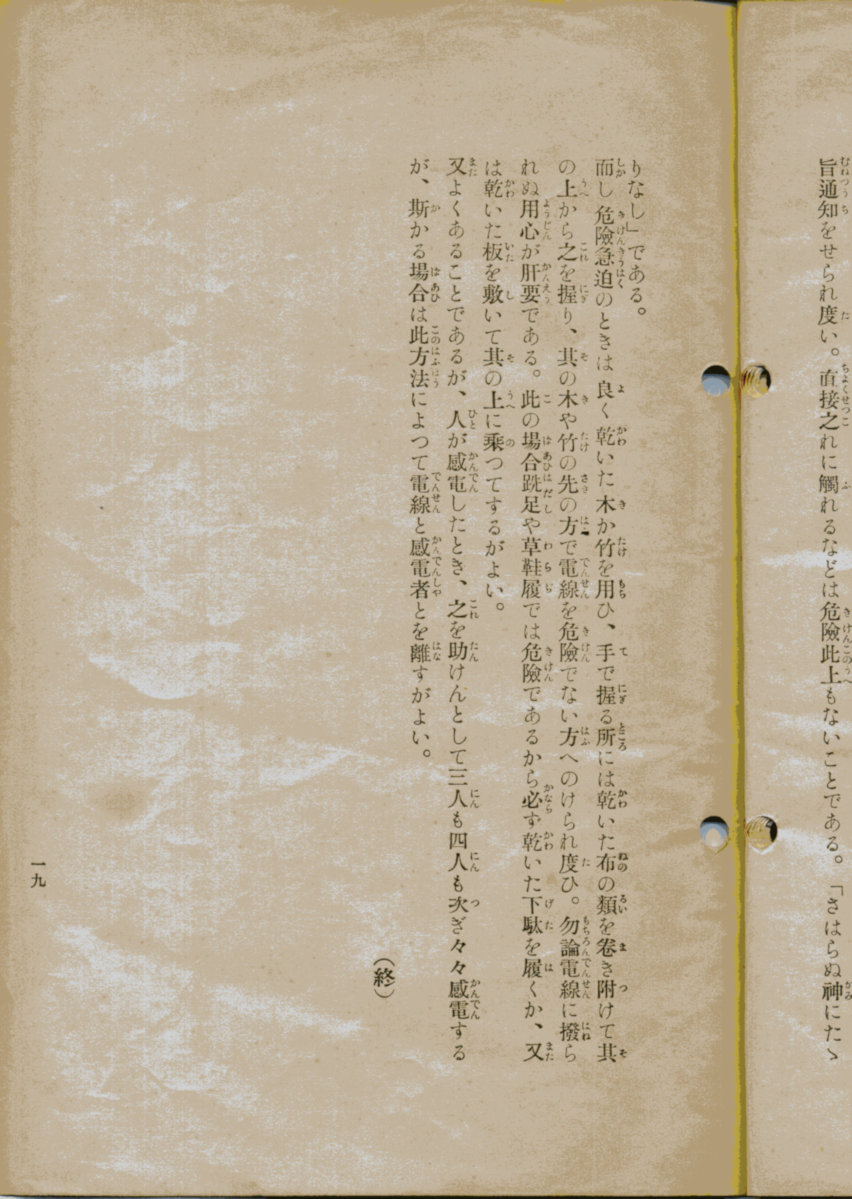 旨通知をせられ度い。直接之れに觸れるなどは危險此上もないことである。「さはらぬ神にたゝ
りなし」である。
而し危險急迫のときは良く乾いた木か竹を用ひ、手で握る所には乾いた布の類を卷き附けて其
の上から之を握り、其の木や竹の先の方で電線を危險でない方へのけられ度ひ。勿論電線に撥ら
れぬ用心が肝要である。此の場合跣足や草鞋履では危險であるから必ず乾いた下駄を履くか、又
は乾いた板を敷いて其の上に乘つてするがよい。
又よくあることであるが、人が感電したとき、之を助けんとして三人も四人も次ぎ々々感電する
が、斯かる場合は此方法によつて電線と感電者とを離すがよい。
（終）
一九